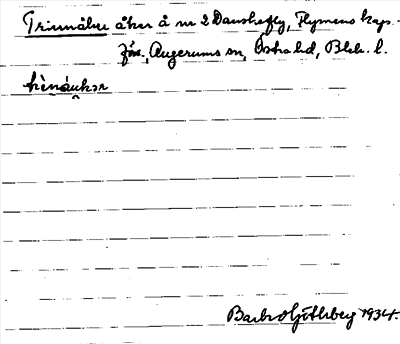 Trinnåker åker å nr 2 Danskefly, Flymens kaps-
förs., Augerums sn, Östra hd, Blek. l.
Barbro Götlberg 1934.